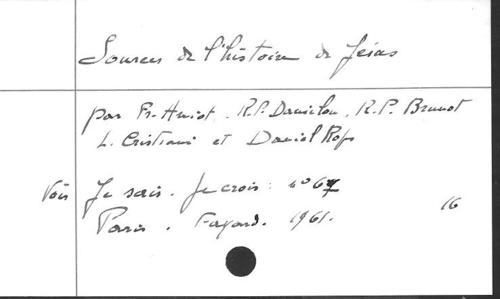 Sources de l'histoire de Jésus
par Fr. Amiot, R.P. Danielou, R.P. Brunot
L. Cristiani et Daniel Rops
Voir Je sais. Je crois: n° 67
Paris. Fayard. 1961. 16